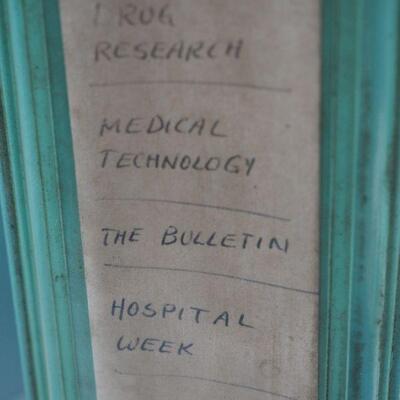 DRUG
RESEARCH
MEDICAL
TECHNOLOGY
THE BULLETIN
HOSPITAL
WEEK